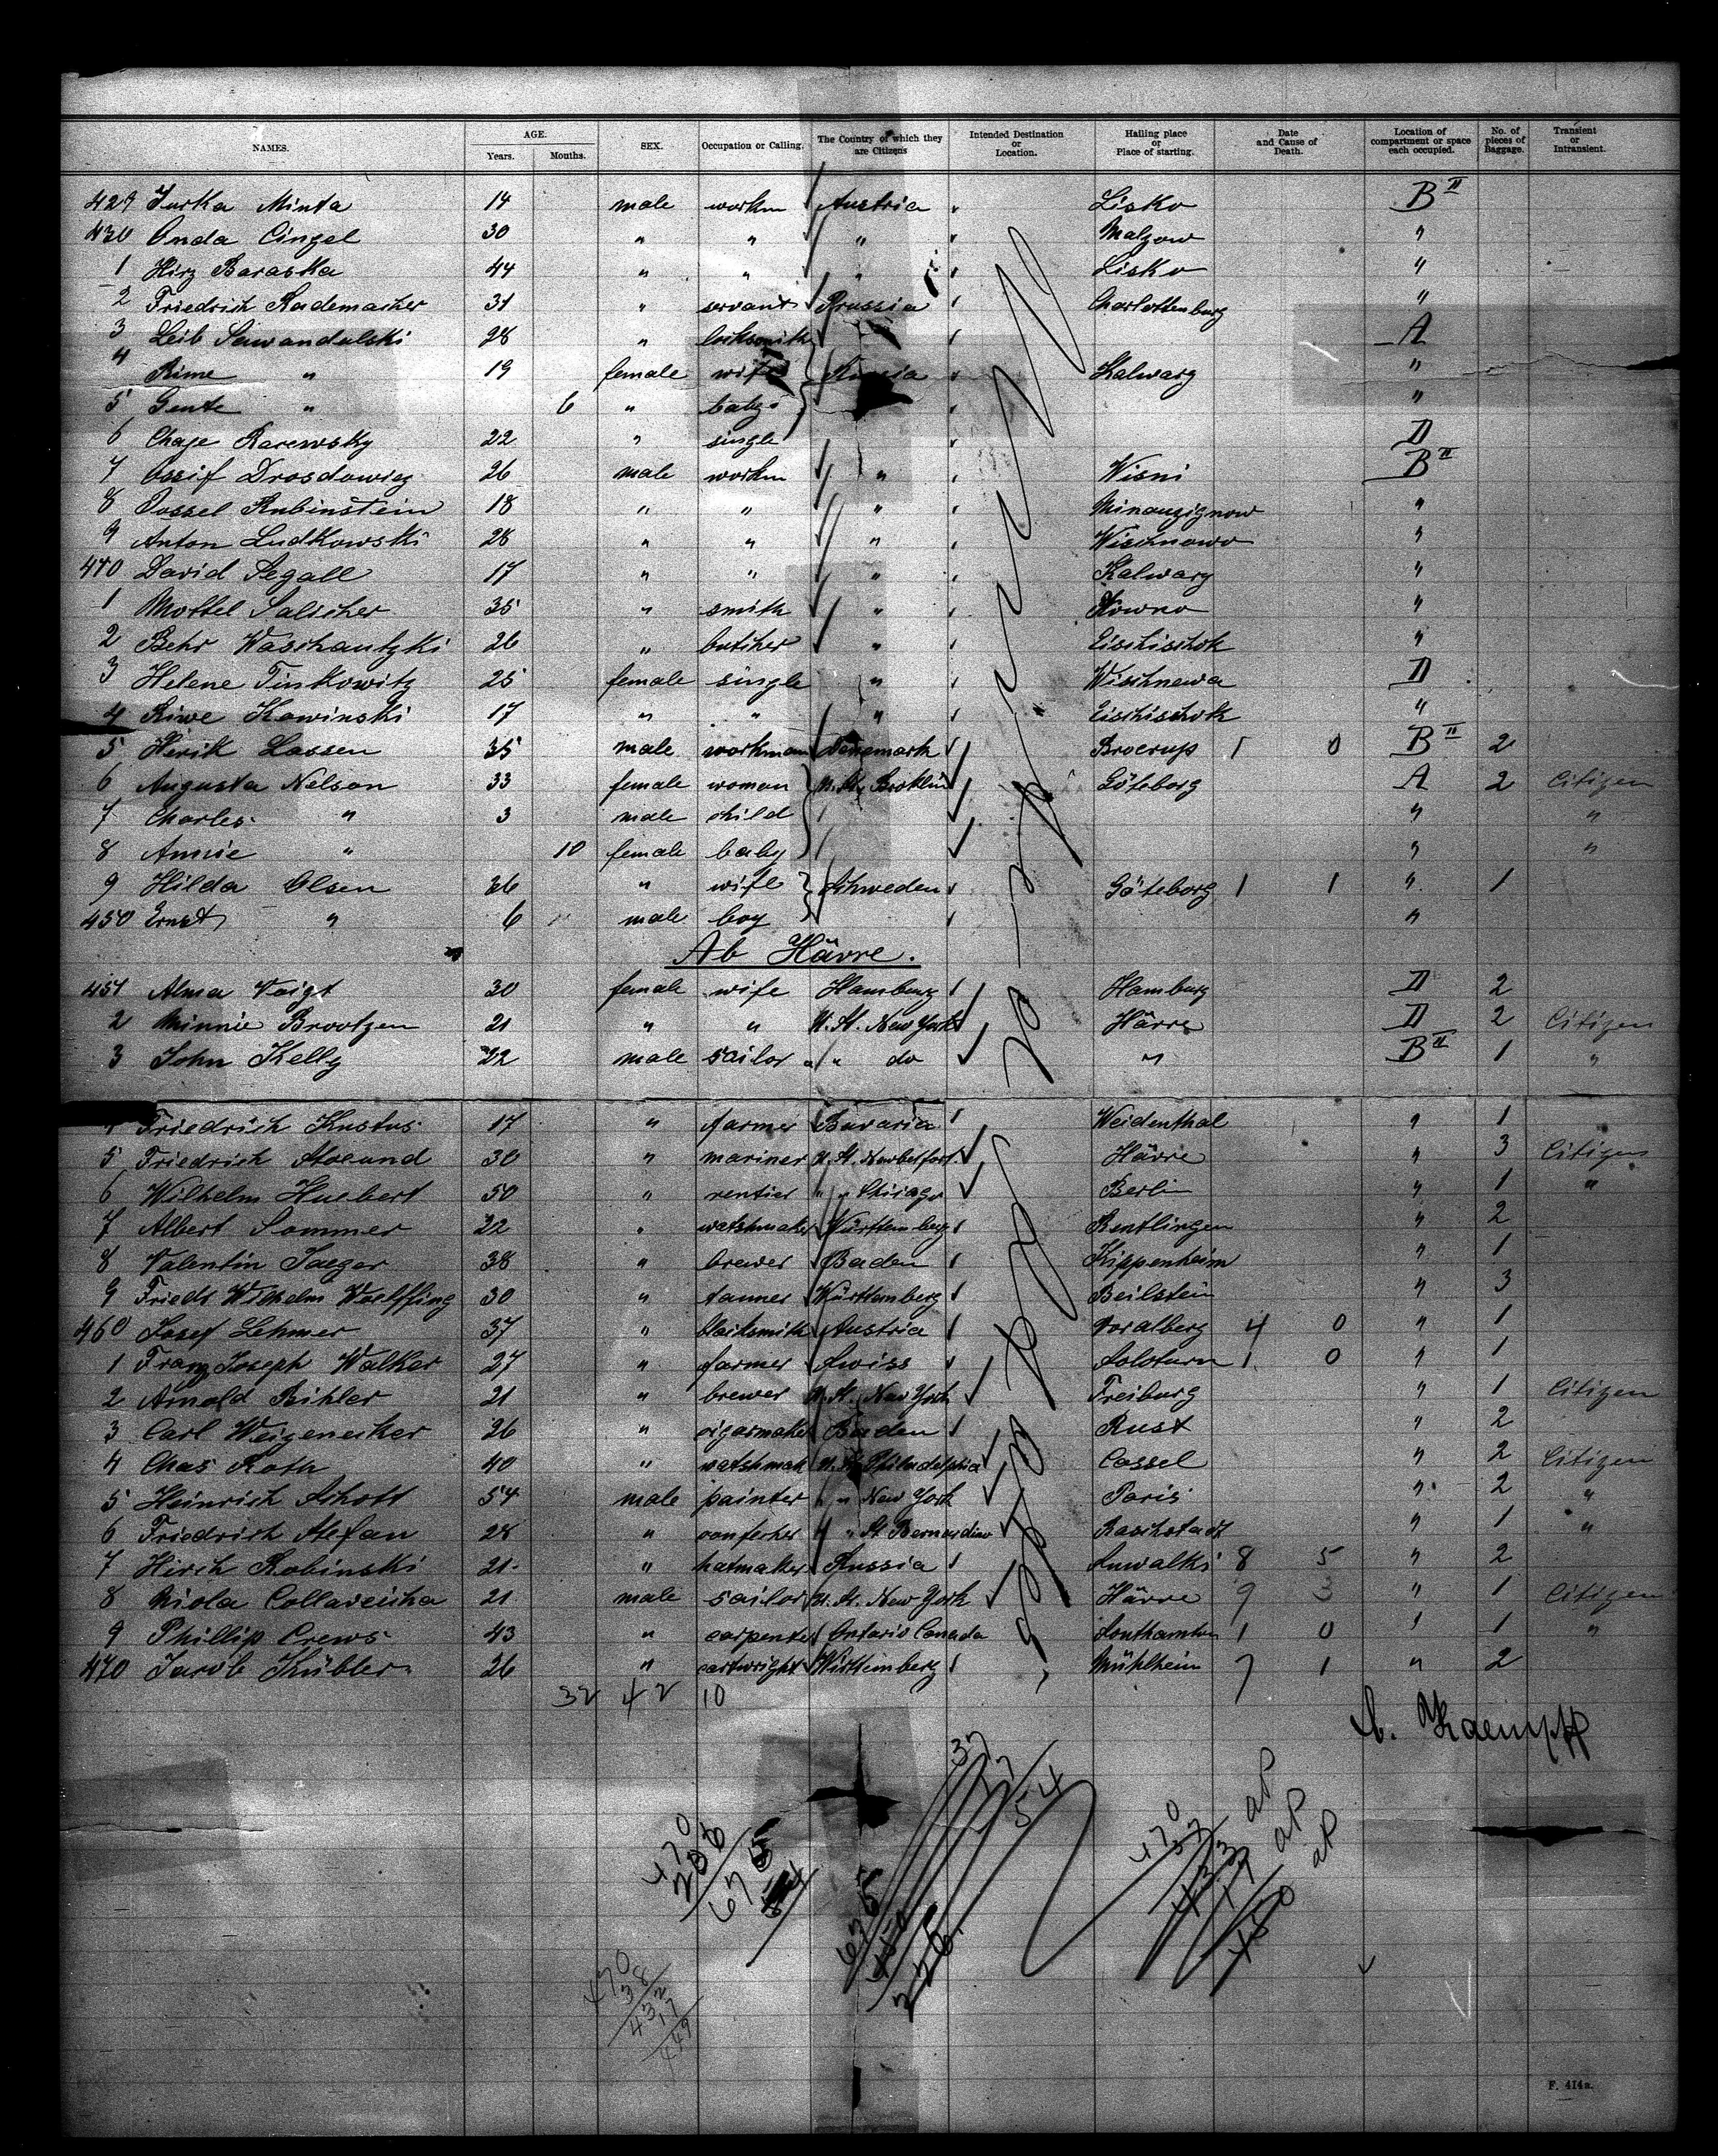 NAMES. AGE. Years. Months. SEX. Occupation or Calling. The Country of which they are Citizens Intended Destination or Location. Hailing place or Place of starting. Date and Cause of Death. Location of compartment or space each occupied. No. of pieces of Baggage. Transient or Intransient.
429 Jurka Minta 14 male workm Austria Lisko B II
430 Anda Cingel 30 " " " Malzow "
1 Hirz Baraska 44 " " " Lisko "
2 Friedrich Rademacher 31 " servant Prussia Charlottenburg "
3 Leib Sawandalski 28 " locksmith A
4 Rime " 19 female wife Russia Kalwary "
5 Gente " 6 " baby "
6 Chaje Rarewsky 22 " single D
7 Ossif Drosdowicz 26 male workm " Wisni B II
8 Jossel Rubinstein 18 " " " "
9 Anton Ludkowski 28 " " " Wischnowo "
440 David Segall 17 " " " Kalwary "
1 Mottel Salscher 35 " smith " Kowno "
2 Behr Waschantzki 26 " butcher " Eischischok "
3 Helene Tinkowitz 25 female single " Wischnewa D
4 Riwe Kowinski 17 " " " Eischischok "
5 Herik Lassen 35 male workman Denemark Brocrup 1 0 B II 2
6 Augusta Nelson 33 female woman U. St. Broklin Göteborg A 2 Citizen
7 Charles " 3 male child " "
8 Annie " 10 female baby " "
9 Hilda Olsen 36 " wife Schweden Göteborg 1 1 " 1
450 Ernst " 6 male boy "
Ab Hävre.
451 Alma Voigt 30 female wife Hamburg Hamburg D 2
2 Minnie Brootzen 21 " " U. St. New York Hävre D 2 Citizen
3 John Kelly 22 male sailor " " do " B II 1 "
Friedrich Kustus 17 " farmer Bavaria Weidenthal " 1
5 Friedrich 30 " mariner U. St. Newbelfort Hävre " 3 Citizen
6 Wilhelm Huebert 50 " rentier " " Chicago Berlin " 1 "
7 Albert Sommer 22 " watshmaker Württemberg Reutlingen " 2
8 Valentin Jaeger 38 " brewer Baden Kippenheim " 1
9 Friedr Wilhelm Woelffing 30 " tanner Württemberg Beilstein " 3
460 Josef Lehmer 37 " blacksmith Austria Voralberg 4 0 " 1
1 Franz Joseph Walker 27 " farmer Swiss Soloturn 1 0 " 1
2 Arnold Bihler 21 " brewer U. St. New York Freiburg " 1 Citizen
3 Carl Weizenecker 26 " cigarmaker Baden Rust " 2
4 Chas Roth 40 " watshmak U. St. Philadelphia Cassel " 2 Citizen
5 Heinrich Schott 54 male painter " " New York Paris " 2 "
6 Friedrich Stefan 28 " confecher " " St Bernardino " 1 "
7 Hirsh Robinski 21 " hatmaker Russia Suwalki 8 5 " 2
8 Niola Collaveicha 21 male sailor U. St. New York Hävre 9 3 " 1 Citizen
9 Phillip Crews 43 " carpenter Ontario Canada Southamton 1 0 " 1 "
470 Jacob Kübler 26 " cartwright Württemberg Mühlheim 7 1 " 2
32 42 10
Kaempff
37
17
54
470
37
433
17
450
aP
aP
aP
470
38
432
17
449
F. 414a.